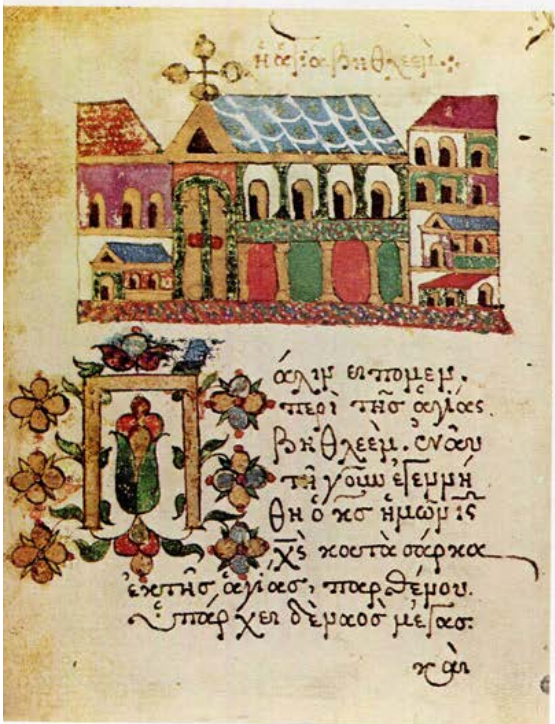 ἡ ἁγία βηθλεὲμ:·
Πάλιν ειπομεν.
περὶ τῆσ ἁγίας
Βηθλεὲμ. ἐν ἀυ
τῆ γοῦν ἐγεννή
θη ὁ κ̅σ̅ ἡμῶν ι̅ς̅
χ̅ς̅ κατὰ σάρκα
ἐκ τῆς ἁγίας, παρθένου.
ὑπάρχει δὲ ναὸς μέγας:
κὰι